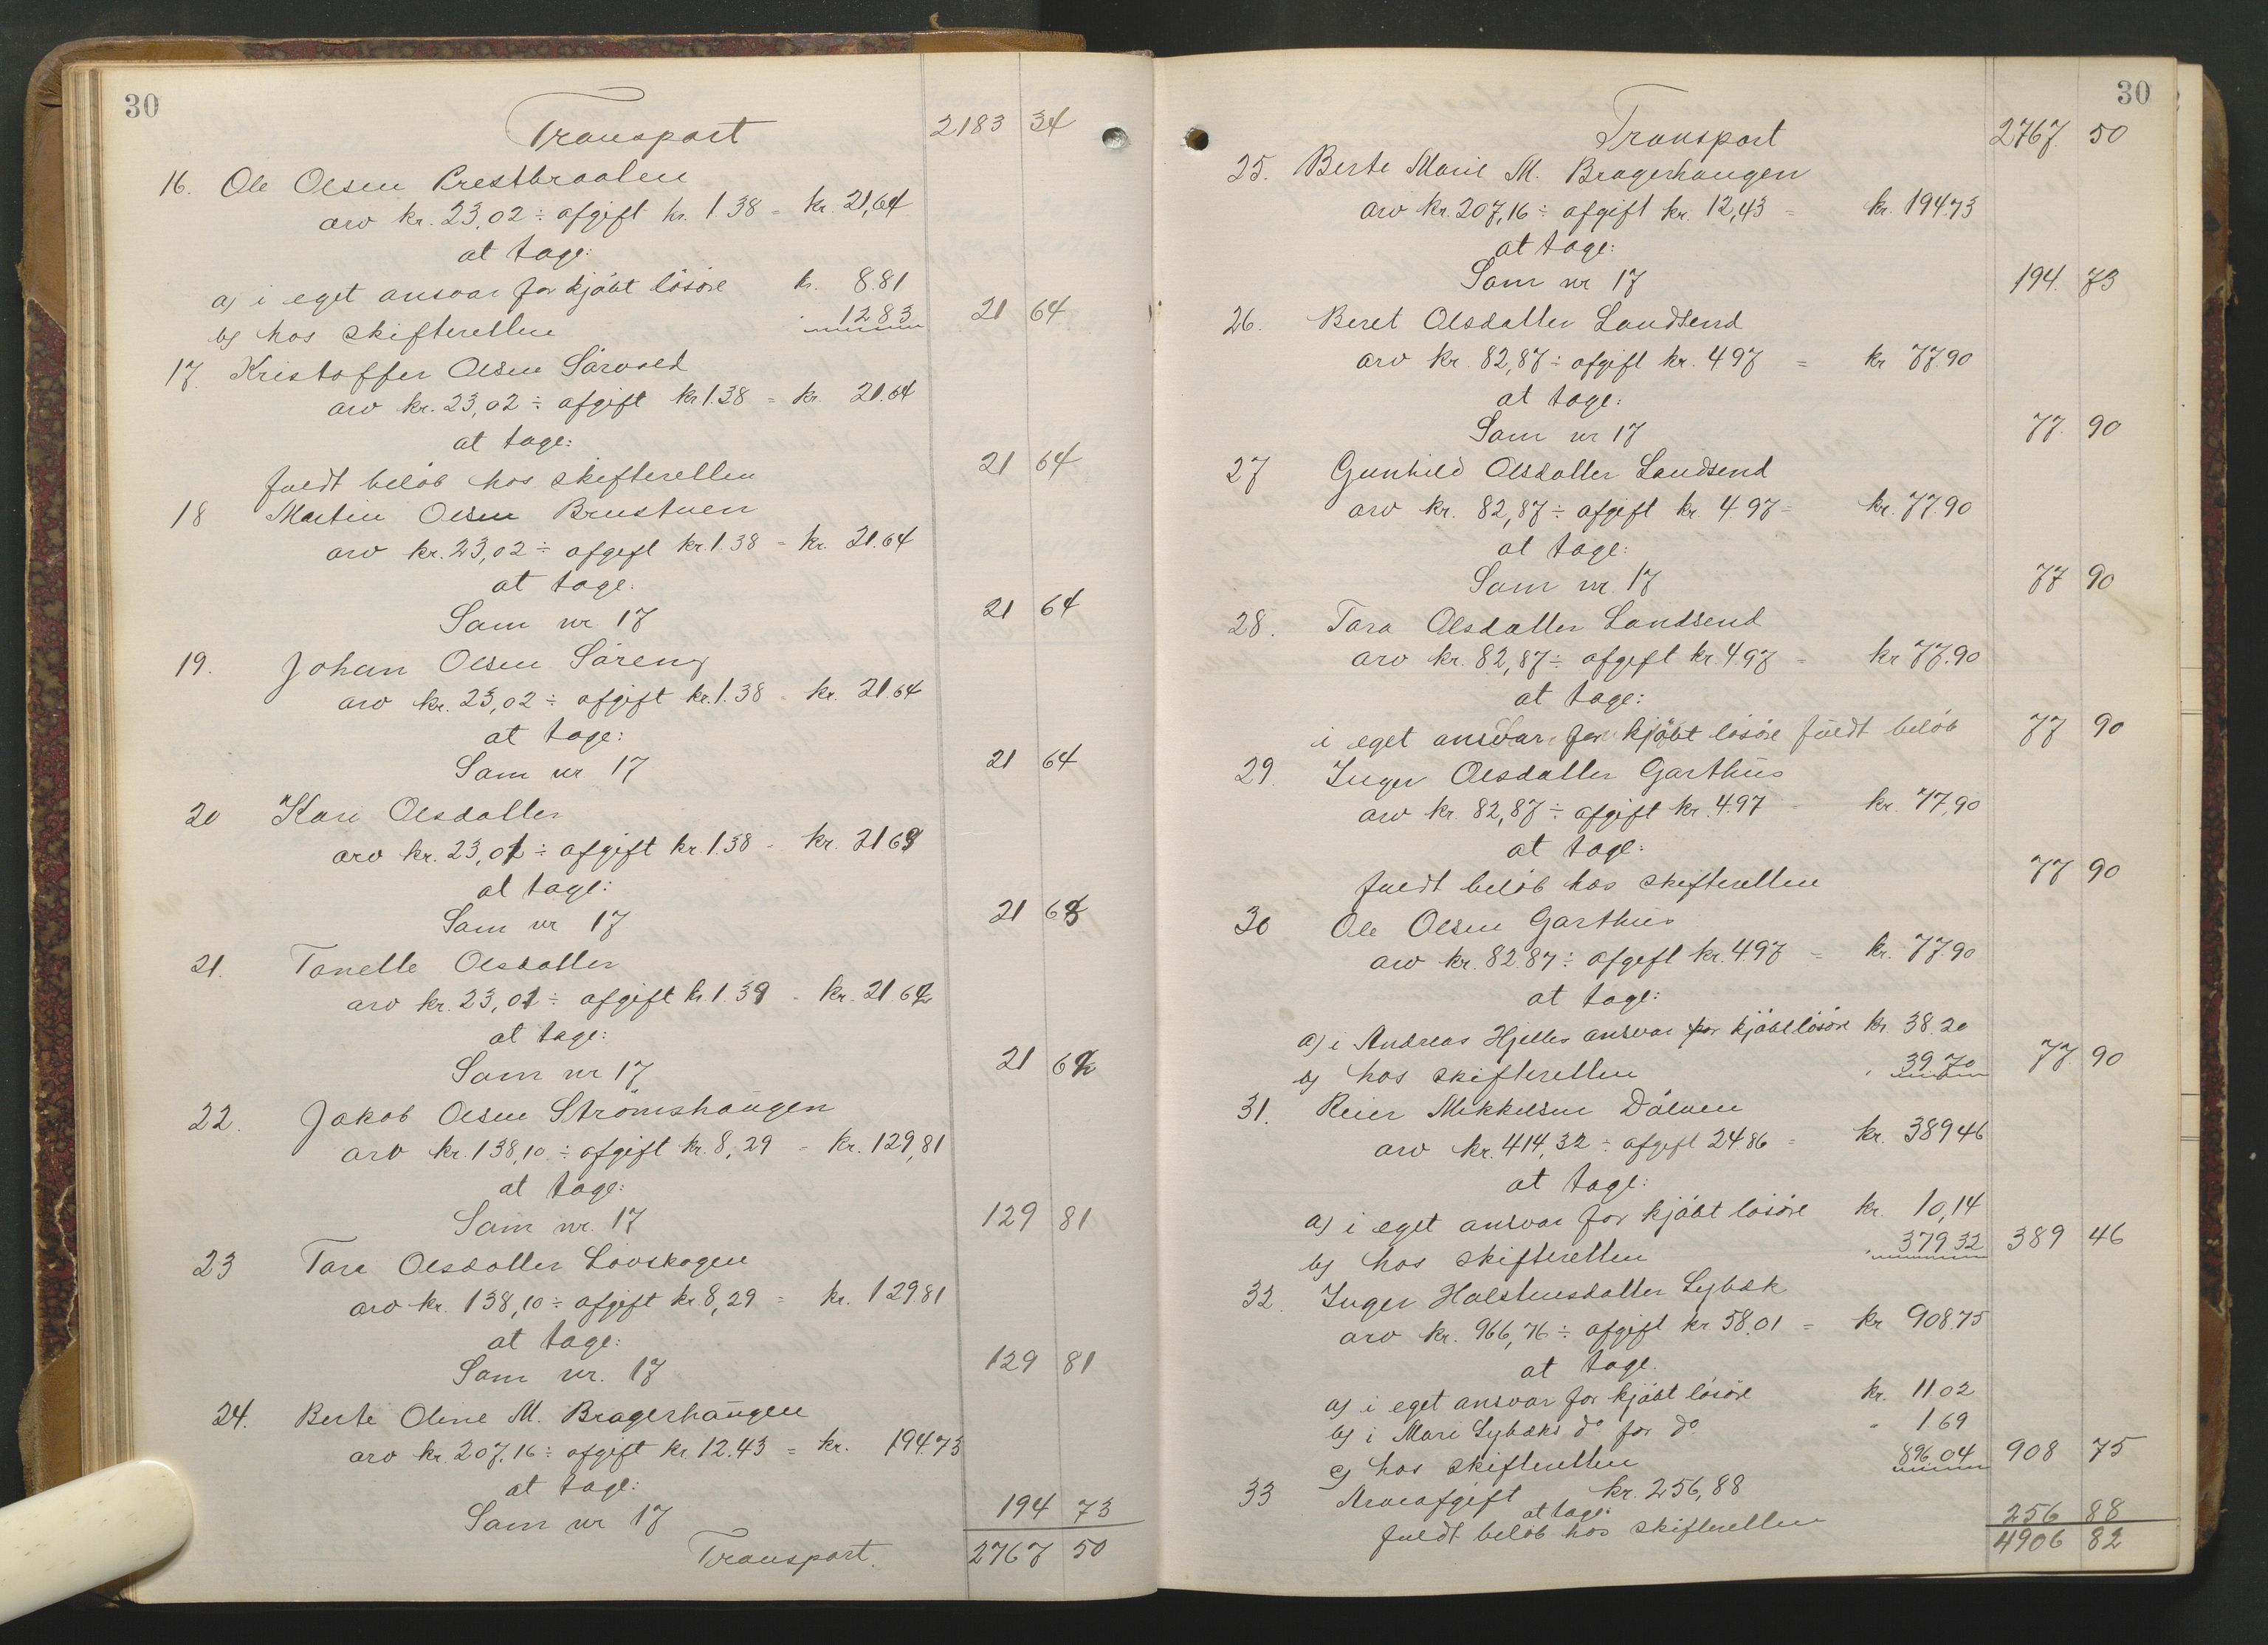 30
Transport 2183 34
16. Ole Olsen Prestbraaten
arv kr. 23,02 ÷ afgift kr. 1.38 = kr. 21,64
at tage:
a) i eget ansvar for kjøbt løsøre kr. 8.81
b) hos skifteretten 12.83 21 64
17. Kristoffer Olsen
arv kr. 23,02 ÷ afgift kr 1.38 = kr. 21.64
at tage:
fuldt beløb hos skifteretten 21 64
18 Martin Olsen Brustuen
arv kr. 23,02 ÷ afgift kr. 1.38 = kr. 21.64
at tage:
Som nr 17 21 64
19. Johan Olsen Søreng
arv kr. 23,02 ÷ afgift kr. 1.38 - kr. 21.64
at tage:
Som nr 17 21 64
20 Kari Olsdatter
arv kr. 23,01 ÷ afgift kr 1.38 - kr. 21 63
at tage:
Som nr 17 21 63
21. Tonette Olsdatter
arv kr. 23,01 ÷ afgift kr 1.39 - kr. 21.62
at tage:
Som nr 17 21 62
22. Jakob Olsen Strömshaugen
arv kr. 138,10 ÷ afgift kr. 8,29 - kr. 129,81
at tage:
Som nr. 17 129 81
23 Tora Olsdatter Lovskogen
arv kr. 138,10 ÷ afgift kr. 8,29 = kr. 129 81
at tage:
Som nr. 17 129 81
24. Berte Oline M. Bragerhaugen
arv kr. 207.16 ÷ afgift kr. 12.43 = kr. 194.73
at tage:
Som nr 17 194 73
Transport. 2767 50
30
Transport 2767. 50
25. Berte Marie M. Bragerhaugen
arv kr. 207,16 ÷ afgift kr. 12,43 = kr. 194.73
at tage:
Som nr 17 194. 73
26. Beret Olsdatter Landsend
arv kr. 82,87 ÷ afgift kr. 4 97 = kr 77.90
at tage:
Som nr 17 77. 90
27 Gunhild Olsdatter Landsend
arv kr. 82,87 ÷ afgift kr. 4 97 = kr. 77.90
at tage:
Som nr. 17 77 90
28. Tora Olsdatter Landsend
arv kr. 82,87 ÷ afgift kr. 4.97 - kr 77.90
at tage:
i eget ansvar for kjøbt løsøre fuldt beløb 77 90
29. Inger Olsdatter Garthus
arv kr. 82,87 ÷ afgift kr. 4.97 - kr. 77,90
at tage:
fuldt beløb hos skifteretten 77 90
30 Ole Olsen Garthus
arv kr. 82.87 ÷ afgift kr. 4.97 = kr. 77.90
at tage:
a) i Andreas Hjelles ansvar for kjøbt løsøre kr. 38.20
b) hos skifteretten 39.70 77 90
31. Reier Mikkelsen Dålven
arv kr. 414,32 ÷ afgift 24.86 = kr. 389 46
at tage:
a) i eget ansvar for kjøbt løsøre kr. 10,14
b) hos skifteretten 379 32 389 46
32. Inger Halstensdatter Lybæk
arv kr. 966,76 ÷ afgift kr 58.01 = kr 908 75
at tage.
a) i eget ansvar for kjøbt løsøre kr. 11.02
b) i Mari Lybæks do for do " 1.69
c) hos skifteretten 896.04 908 75
33 Arveafgift kr. 256,88
at tage:
fuldt beløb hos skifteretten 256 88
4906 82